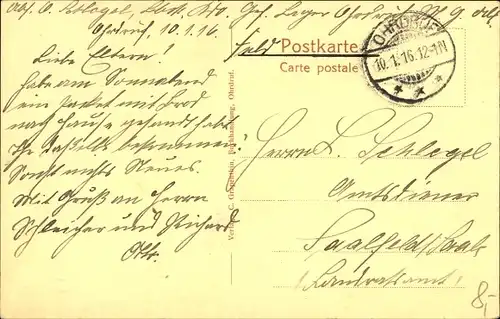 Abs. O. Schlegel, Gef. Lager Ohrdruf
Ohrdruf, 10.1.16.
Liebe Eltern!
habe am Sonnabend
ein Paket mit Brod
nach Hause gesandt, habt
Ihr daßelbe bekommen?
Sonst nichts Neues.
Mit Gruß an Herrn
Schleicher und Richard
Otto.
Feld Postkarte
Carte postale
OHRDRUF
10.1.16.12-1N
Herrn L. Schlegel
Amtsdiener
Saalfeld/Saale
Landratsamt
8,-